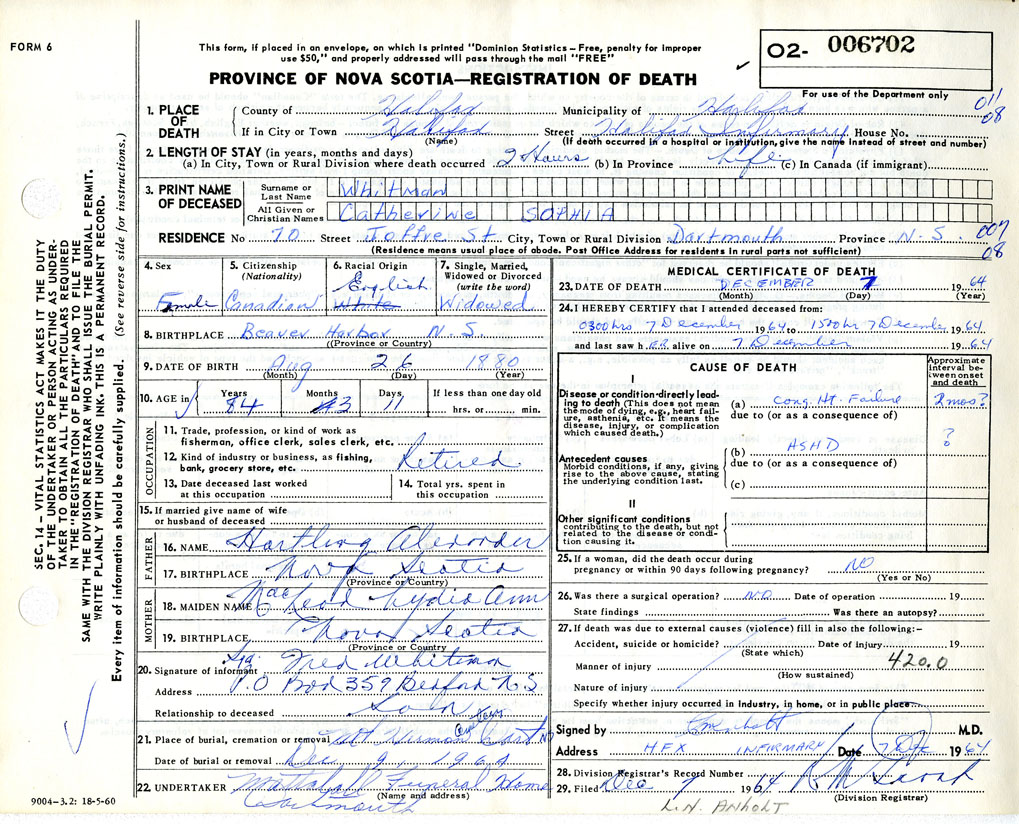 FORM 6
This form, if placed in an envelope, on which is printed "Dominion Statistics – Free, penalty for improper
use $50," and properly addressed will pass through the mail "FREE"
O2- 006702
For use of the Department only
PROVINCE OF NOVA SCOTIA—REGISTRATION OF DEATH
011
08
1. PLACE OF DEATH
County of Halifax Municipality of Halifax
If in City or Town Halifax Street Halifax Infirmary House No.
(Name) (If death occurred in a hospital or institution, give the name instead of street and number)
2. LENGTH OF STAY (in years, months and days)
(a) In City, Town or Rural Division where death occurred 9 Hours (b) In Province Life (c) In Canada (if immigrant)
3. PRINT NAME OF DECEASED
Surname or Last Name Whitman
All Given or Christian Names Catherine SOPHIA
RESIDENCE No 70 Street Joffre St. City, Town or Rural Division Dartmouth Province N.S.
007
08
(Residence means usual place of abode. Post Office Address for residents in rural parts not sufficient)
4. Sex
Female
5. Citizenship
(Nationality)
Canadian
6. Racial Origin
English
White
7. Single, Married, Widowed or Divorced
(write the word)
Widowed
8. BIRTHPLACE Beaver Harbor N.S.
(Province or Country)
9. DATE OF BIRTH Aug 26 1880
(Month) (Day) (Year)
10. AGE in
Years 84
Months 3
Days 11
If less than one day old
hrs. or min.
OCCUPATION
11. Trade, profession, or kind of work as
fisherman, office clerk, sales clerk, etc.
12. Kind of industry or business, as fishing,
bank, grocery store, etc.
Retired
13. Date deceased last worked
at this occupation
14. Total yrs. spent in
this occupation
15. If married give name of wife
or husband of deceased
FATHER
16. NAME Hartling Alexander
17. BIRTHPLACE Nova Scotia
(Province or Country)
MOTHER
18. MAIDEN NAME MacLeod Lydia Ann
19. BIRTHPLACE Nova Scotia
(Province or Country)
20. Signature of informant Sg. Fred Whitman
Address P.O Box 359 Bedford N.S
Relationship to deceased Son
21. Place of burial, cremation or removal Mt Hermon Cemetery Dart NS
Date of burial or removal Dec 9, 1964
22. UNDERTAKER Mattatall Funeral Home
(Name and address)
Dartmouth
9004–3.2: 18-5-60
MEDICAL CERTIFICATE OF DEATH
23. DATE OF DEATH DECEMBER 7 1964
(Month) (Day) (Year)
24. I HEREBY CERTIFY that I attended deceased from:
0300hrs 7 December 1964 to 1500hr 7 December, 1964
and last saw her alive on 7 December 1964
CAUSE OF DEATH
Approximate interval between onset and death
I
Disease or condition directly leading to death (This does not mean the mode of dying, e.g., heart failure, asthenia, etc. It means the disease, injury, or complication which caused death.)
(a) Cong. Ht. Failure 2 mos?
due to (or as a consequence of)
Antecedent causes
Morbid conditions, if any, giving rise to the above cause, stating the underlying condition last.
(b) ASHD ?
due to (or as a consequence of)
(c)
II
Other significant conditions contributing to the death, but not related to the disease or condition causing it.
25. If a woman, did the death occur during
pregnancy or within 90 days following pregnancy? NO
(Yes or No)
26. Was there a surgical operation? NO Date of operation 19
State findings Was there an autopsy?
27. If death was due to external causes (violence) fill in also the following:–
Accident, suicide or homicide? Date of injury 19
(State which)
420.0
Manner of injury
(How sustained)
Nature of injury
Specify whether injury occurred in industry, in home, or in public place
Signed by M.D.
Address HFX INFIRMARY Date 7 Dec 1964
28. Division Registrar's Record Number
29. Filed Dec 7 1964
(Division Registrar)
L.N. ANHOLT
SEC. 14 – VITAL STATISTICS ACT MAKES IT THE DUTY
OF THE UNDERTAKER OR PERSON ACTING AS UNDER-
TAKER TO OBTAIN ALL THE PARTICULARS REQUIRED
IN THE "REGISTRATION OF DEATH" AND TO FILE THE
SAME WITH THE DIVISION REGISTRAR WHO SHALL ISSUE THE BURIAL PERMIT.
WRITE PLAINLY WITH UNFADING INK. THIS IS A PERMANENT RECORD.
Every item of information should be carefully supplied. (See reverse side for instructions.)